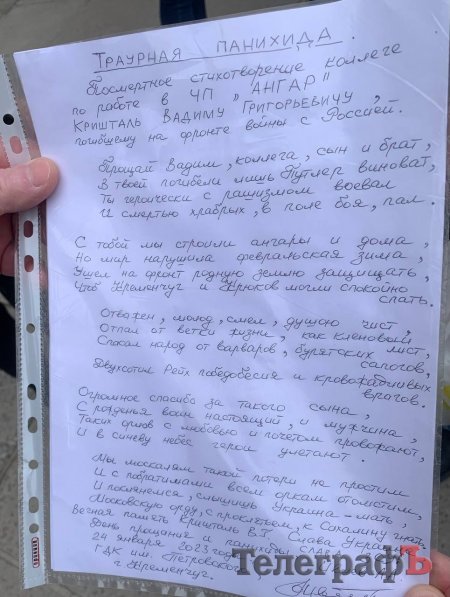 Траурная панихида.
Посмертное стихотворение коллеге
по работе в ЧП "АНГАР"
Кришталь Вадиму Григорьевичу,
погибшему на фронте войны с Россией.
Прощай Вадим, коллега, сын и брат,
В твоей погибели лишь Путлер виноват,
Ты героически с рашизмом воевал
И смертью храбрых, в поле боя, пал.
С тобой мы строили ангары и дома,
Но мир нарушила февральская зима,
Ушел на фронт родную землю защищать,
Чтоб Кременчуг и Крюков могли спокойно
спать.
Отважен, молод, смел, душою чист,
Отпал от ветви жизни, как кленовый лист,
Спасал народ от варваров, бурятских сапогов,
Двухсотил Рейх победобесия и кровожадливых
врагов.
Огромное спасибо за такого сына,
С рожденья воин настоящий, и мужчина,
Таких орлов с любовью и почетом провожают,
И в синеву небес герои улетают.
Мы москалям такой потери не простим
И с побратимами всем оркам отомстим,
И поклянемся, слышишь Украина-мать,
Московскую орду, с проклятьем, к Сахалину гнать.
Вечная память Кришталь В.Г. Слава Украине
День прощания и панихиды
24 января 2023
ГДК им. Петровского
г. Кременчуг.
ТелеграфЪ